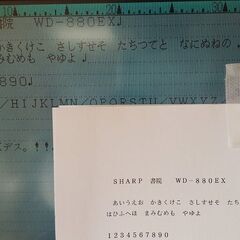 10 20 30
院 WD-880EX♩
かきくけこ さしすせそ たちつてと なにぬねの
まみむめも やゆよ♩
890♩
/HIJKLMN/OPQRSTU/VWXYZ
デス。!!
SHARP 書院 WD-880EX
あいうえお かきくけこ さしすせそ た
はひふへほ まみむめも やゆよ
1234567890